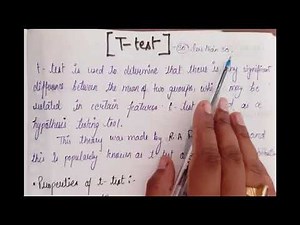 [T-test]
t-test is used to determine that there is any significant
difference between the mean of two groups, which may be
related in certain features t-test as a
hypothesis testing tool.
This theory was made by R.A and
this is popularly known as t-test
• Properties of t-test :-